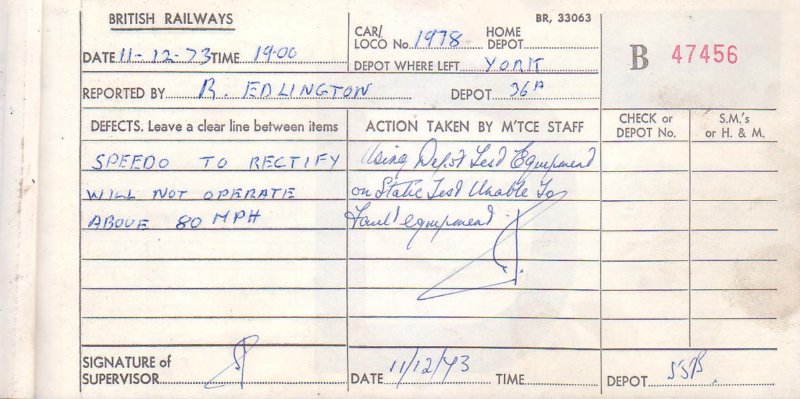 BRITISH RAILWAYS
BR, 33063
DATE 11-12-73 TIME 19.00
CAR/ LOCO No. 1978 HOME DEPOT
DEPOT WHERE LEFT YORK
B 47456
REPORTED BY R. EDLINGTON DEPOT 36A
DEFECTS. Leave a clear line between items
ACTION TAKEN BY M'TCE STAFF
CHECK or DEPOT No.
S.M.'s or H. & M.
SPEEDO TO RECTIFY
WILL NOT OPERATE
ABOVE 80 MPH
Using Depot Test Equipment
on Static Test Unable To
Fault equipment
SIGNATURE of SUPERVISOR
DATE 11/12/73 TIME
DEPOT